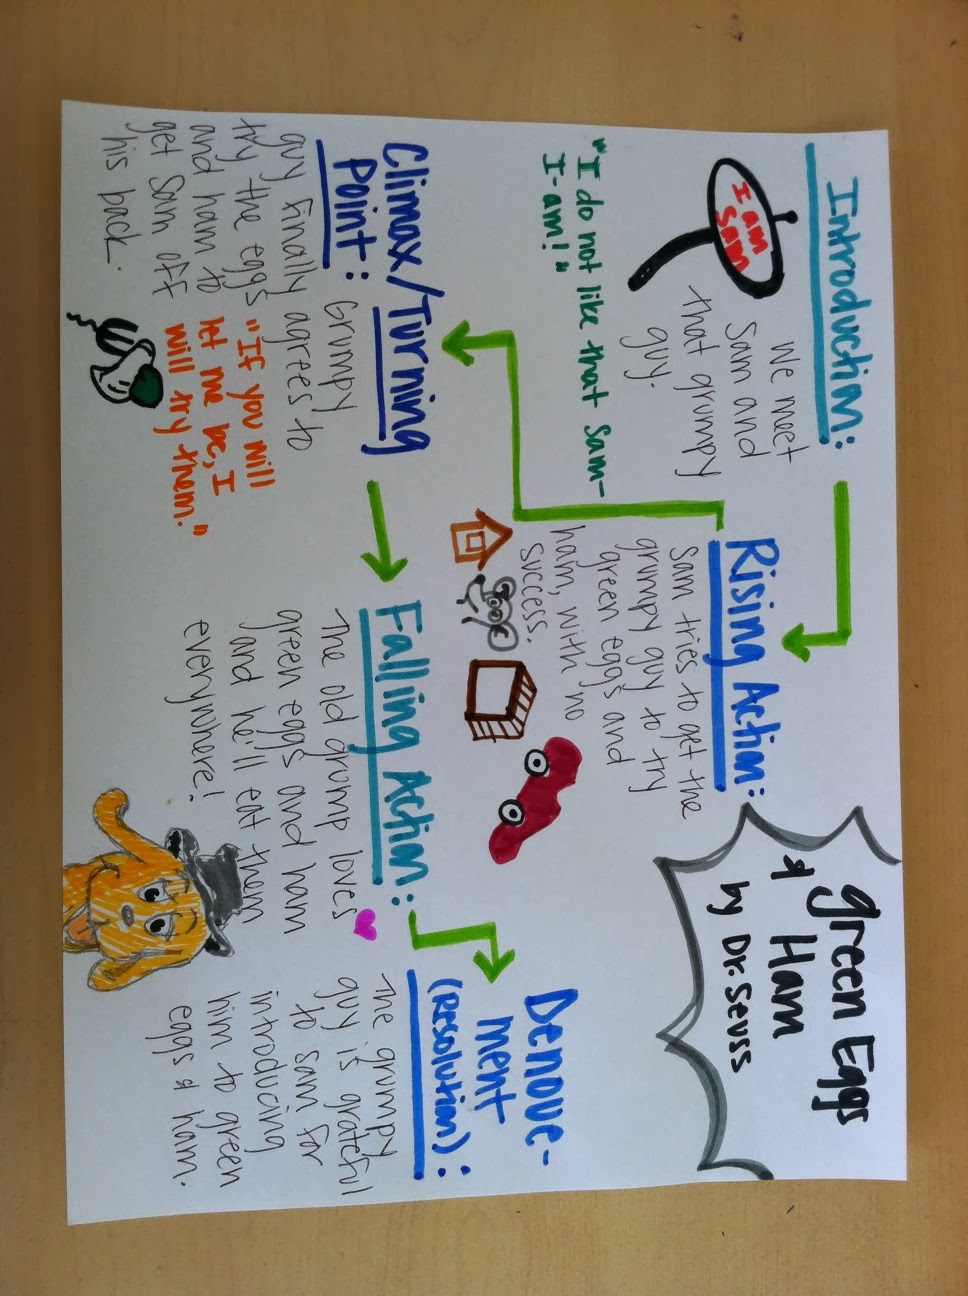 Introduction:
I am
Sam
We meet
Sam and
that grumpy
guy.
"I do not like that Sam-
I-am!"
Rising Action:
Sam tries to get the
grumpy guy to try
green eggs and
ham, with no
success.
green Eggs
& Ham
by Dr. Seuss
Climax/Turning
Point:
Grumpy
guy finally agrees to
try the eggs
and ham to
get Sam off
his back.
"If you will
let me be, I
will try them."
Falling Action:
The old grump loves
green eggs and ham
and he'll eat them
everywhere!
Denoue-
ment
(Resolution):
The grumpy
guy is grateful
to Sam for
introducing
him to green
eggs & ham.